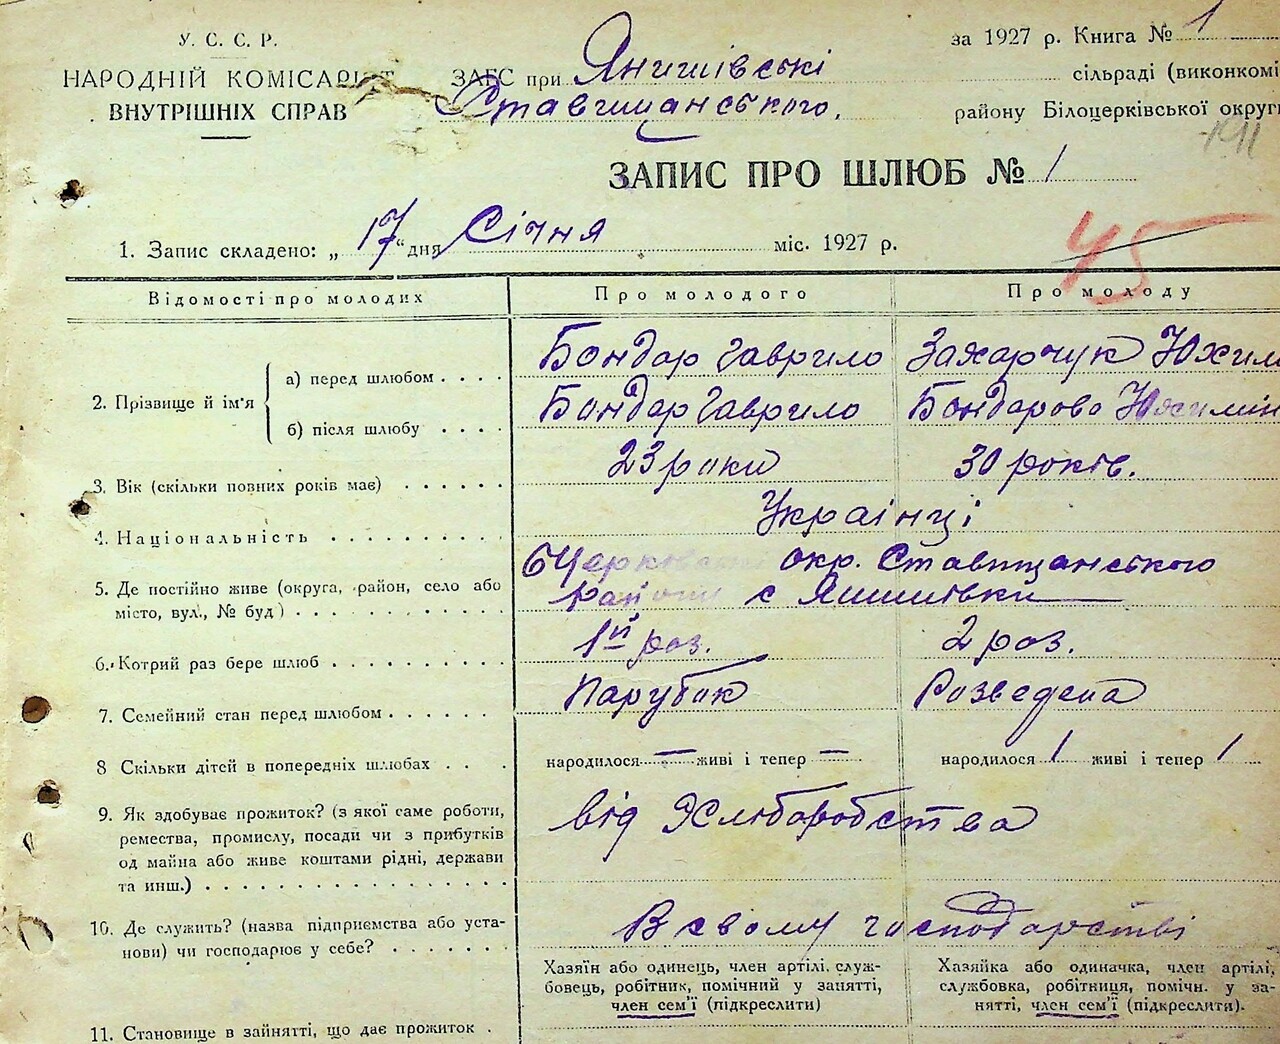 У. С. С. Р.
НАРОДНІЙ КОМІСАРИЯТ
ВНУТРІШНІХ СПРАВ
за 1927 р. Книга № 1
ЗАГС при Янишівські сільраді (виконкомі
Ставищанського. району Білоцерківської округи
1911
ЗАПИС ПРО ШЛЮБ № 1
1. Запис складено: „17“ дня Січня міс. 1927 р.
45
Відомості про молодих Про молодого Про молоду
2. Прізвище й ім'я
а) перед шлюбом . . . . Бондар Гаврило Захарчук Юхим
б) після шлюбу . . . . Бондар Гаврило Бондарово Юхимін
3. Вік (скільки повних років має) . . . . . . 23 роки 30 років.
4. Національність . . . . . . . . . . Українці
5. Де постійно живе (округа, район, село або БЦерковської окр. Ставищанського
місто, вул., № буд) . . . . . . . . . . . . району с Янишівки
6. Котрий раз бере шлюб . . . . . . . . . . 1й раз. 2 роз.
7. Семейний стан перед шлюбом . . . . . . Парубок Розведена
8 Скільки дітей в попередніх шлюбах . . . народилося — живі і тепер — народилося 1 живі і тепер 1
9. Як здобуває прожиток? (з якої саме роботи, від Хліборобства
ремества, промислу, посади чи з прибутків
од майна або живе коштами рідні, держави
та инш.) . . . . . . . . . . . . . . . . .
10. Де служить? (назва підприємства або уста- В свому господарстві
нови) чи господарює у себе? . . . . . . .
Хазяїн або одинець, член артілі, служ- Хазяйка або одиначка, член артілі,
бовець, робітник, помічний у занятті, службовка, робітниця, помічн. у за-
член сем'ї (підкреслити) нятті, член сем'ї (підкреслити).
11. Становище в зайнятті, що дає прожиток .